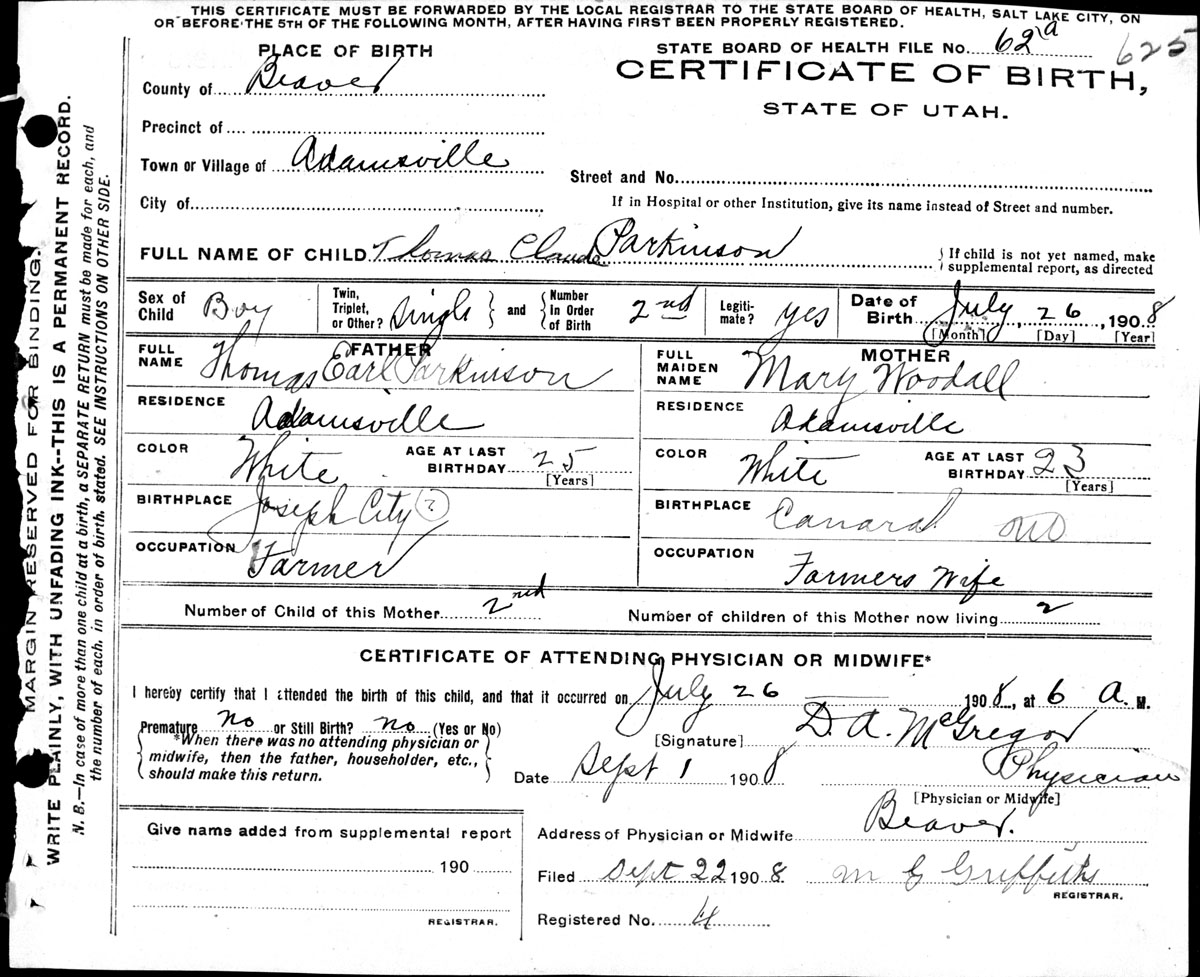 THIS CERTIFICATE MUST BE FORWARDED BY THE LOCAL REGISTRAR TO THE STATE BOARD OF HEALTH, SALT LAKE CITY, ON
OR BEFORE THE 5TH OF THE FOLLOWING MONTH, AFTER HAVING FIRST BEEN PROPERLY REGISTERED.
PLACE OF BIRTH
STATE BOARD OF HEALTH FILE No. 62a 625
County of Beaver
CERTIFICATE OF BIRTH,
STATE OF UTAH.
Precinct of
Town or Village of Adamsville
Street and No.
City of
If in Hospital or other Institution, give its name instead of Street and number.
FULL NAME OF CHILD Thomas Claude Parkinson
{If child is not yet named, make
supplemental report, as directed
Sex of Child Boy
Twin, Triplet, or Other? Single } and { Number In Order of Birth 2nd
Legitimate? yes
Date of Birth July, 26, 1908
[Month] [Day] [Year]
FATHER
FULL NAME Thomas Earl Parkinson
RESIDENCE Adamsville
COLOR White
AGE AT LAST BIRTHDAY 25
[Years]
BIRTHPLACE Joseph City ?
OCCUPATION Farmer
MOTHER
FULL MAIDEN NAME Mary Woodall
RESIDENCE Adamsville
COLOR White
AGE AT LAST BIRTHDAY 23
[Years]
BIRTHPLACE
OCCUPATION Farmers Wife
Number of Child of this Mother 2nd
Number of children of this Mother now living 2
CERTIFICATE OF ATTENDING PHYSICIAN OR MIDWIFE*
I hereby certify that I attended the birth of this child, and that it occurred on July 26 1908, at 6 a. M.
Premature no or Still Birth? no (Yes or No)
{*When there was no attending physician or
midwife, then the father, householder, etc.,
should make this return.}
[Signature] D. A. McGregor
Physician
[Physician or Midwife]
Date Sept 1 1908
Give name added from supplemental report
190
REGISTRAR.
Address of Physician or Midwife Beaver.
Filed Sept 22 1908 Griffiths
REGISTRAR.
Registered No. 4
MARGIN RESERVED FOR BINDING.
WRITE PLAINLY, WITH UNFADING INK--THIS IS A PERMANENT RECORD.
N. B.—In case of more than one child at a birth, a SEPARATE RETURN must be made for each, and
the number of each, in order of birth, stated. SEE INSTRUCTIONS ON OTHER SIDE.